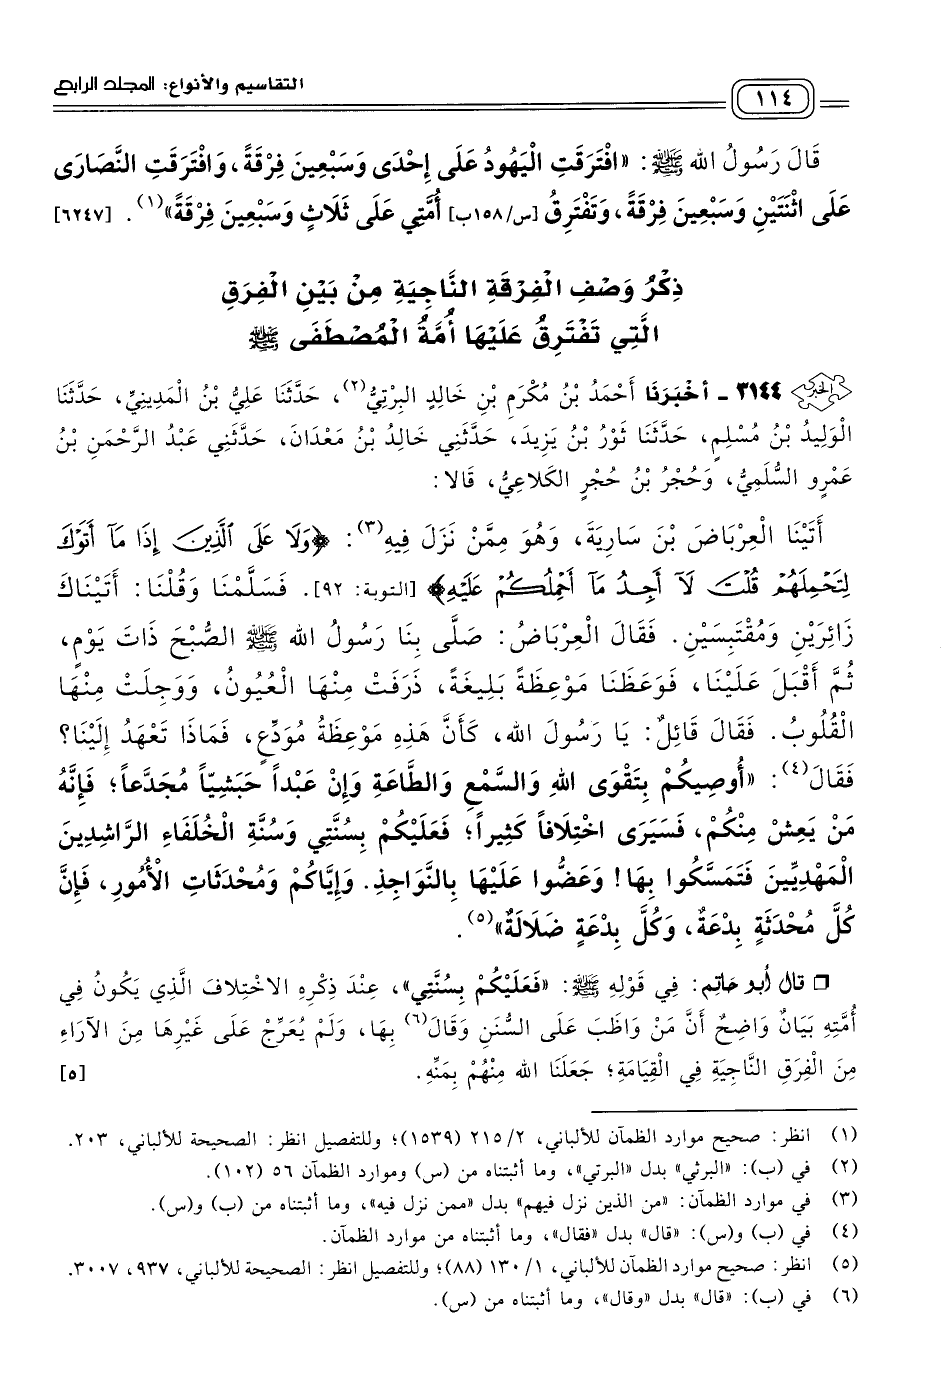 التقاسيم والأنواع: المجلد الرابع
١١٤
قَالَ رَسُولُ اللهِ ﷺ: «افْتَرَقَتِ الْيَهُودُ عَلَى إِحْدَى وَسَبْعِينَ فِرْقَةً، وَافْتَرَقَتِ النَّصَارَى
عَلَى اثْنَتَيْنِ وَسَبْعِينَ فِرْقَةً، وَتَفْتَرِقُ [س/١٥٨ب] أُمَّتِي عَلَى ثَلَاثٍ وَسَبْعِينَ فِرْقَةً»(١). [٦٢٤٧]
ذِكْرُ وَصْفِ الْفِرْقَةِ النَّاجِيَةِ مِنْ بَيْنِ الْفِرَقِ
الَّتِي تَفْتَرِقُ عَلَيْهَا أُمَّةُ الْمُصْطَفَى ﷺ
الخبر ٣١٤٤ - أَخْبَرَنَا أَحْمَدُ بْنُ مُكْرَمِ بْنِ خَالِدٍ البِرْتِيُّ(٢)، حَدَّثَنَا عَلِيُّ بْنُ الْمَدِينِيِّ، حَدَّثَنَا
الْوَلِيدُ بْنُ مُسْلِمٍ، حَدَّثَنَا ثَوْرُ بْنُ يَزِيدَ، حَدَّثَنِي خَالِدُ بْنُ مَعْدَانَ، حَدَّثَنِي عَبْدُ الرَّحْمَنِ بْنُ
عَمْرٍو السُّلَمِيُّ، وَحُجْرُ بْنُ حُجْرٍ الكَلَاعِيُّ، قَالَا:
أَتَيْنَا الْعِرْبَاضَ بْنَ سَارِيَةَ، وَهُوَ مِمَّنْ نَزَلَ فِيهِ(٣): ﴿وَلَا عَلَى ٱلَّذِينَ إِذَا مَآ أَتَوْكَ
لِتَحْمِلَهُمْ قُلْتَ لَآ أَجِدُ مَآ أَحْمِلُكُمْ عَلَيْهِ﴾ [التوبة: ٩٢]. فَسَلَّمْنَا وَقُلْنَا: أَتَيْنَاكَ
زَائِرَيْنِ وَمُقْتَبِسَيْنِ. فَقَالَ الْعِرْبَاضُ: صَلَّى بِنَا رَسُولُ اللهِ ﷺ الصُّبْحَ ذَاتَ يَوْمٍ،
ثُمَّ أَقْبَلَ عَلَيْنَا، فَوَعَظَنَا مَوْعِظَةً بَلِيغَةً، ذَرَفَتْ مِنْهَا الْعُيُونُ، وَوَجِلَتْ مِنْهَا
الْقُلُوبُ. فَقَالَ قَائِلٌ: يَا رَسُولَ اللهِ، كَأَنَّ هَذِهِ مَوْعِظَةُ مُوَدِّعٍ، فَمَاذَا تَعْهَدُ إِلَيْنَا؟
فَقَالَ(٤): «أُوصِيكُمْ بِتَقْوَى اللهِ وَالسَّمْعِ وَالطَّاعَةِ وَإِنْ عَبْداً حَبَشِيّاً مُجَدَّعاً؛ فَإِنَّهُ
مَنْ يَعِشْ مِنْكُمْ، فَسَيَرَى اخْتِلَافاً كَثِيراً؛ فَعَلَيْكُمْ بِسُنَّتِي وَسُنَّةِ الْخُلَفَاءِ الرَّاشِدِينَ
الْمَهْدِيِّينَ فَتَمَسَّكُوا بِهَا! وَعَضُّوا عَلَيْهَا بِالنَّوَاجِذِ. وَإِيَّاكُمْ وَمُحْدَثَاتِ الْأُمُورِ، فَإِنَّ
كُلَّ مُحْدَثَةٍ بِدْعَةٌ، وَكُلَّ بِدْعَةٍ ضَلَالَةٌ»(٥).
❒ قال أبو حاتِم: فِي قَوْلِهِ ﷺ: «فَعَلَيْكُمْ بِسُنَّتِي»، عِنْدَ ذِكْرِهِ الاخْتِلَافَ الَّذِي يَكُونُ فِي
أُمَّتِهِ بَيَانٌ وَاضِحٌ أَنَّ مَنْ وَاظَبَ عَلَى السُّنَنِ وَقَالَ(٦) بِهَا، وَلَمْ يُعَرِّجْ عَلَى غَيْرِهَا مِنَ الآرَاءِ
مِنَ الْفِرَقِ النَّاجِيَةِ فِي الْقِيَامَةِ؛ جَعَلَنَا اللهُ مِنْهُمْ بِمَنِّهِ. [٥]
(١) انظر: صحيح موارد الظمآن للألباني، ٢/ ٢١٥ (١٥٣٩)؛ وللتفصيل انظر: الصحيحة للألباني، ٢٠٣.
(٢) في (ب): «البرثي» بدل «البرتي»، وما أثبتناه من (س) وموارد الظمآن ٥٦ (١٠٢).
(٣) في موارد الظمآن: «من الذين نزل فيهم» بدل «ممن نزل فيه»، وما أثبتناه من (ب) و(س).
(٤) في (ب) و(س): «قال» بدل «فقال»، وما أثبتناه من موارد الظمآن.
(٥) انظر: صحيح موارد الظمآن للألباني، ١/ ١٣٠ (٨٨)؛ وللتفصيل انظر: الصحيحة للألباني، ٩٣٧، ٣٠٠٧.
(٦) في (ب): «قال» بدل «وقال»، وما أثبتناه من (س).